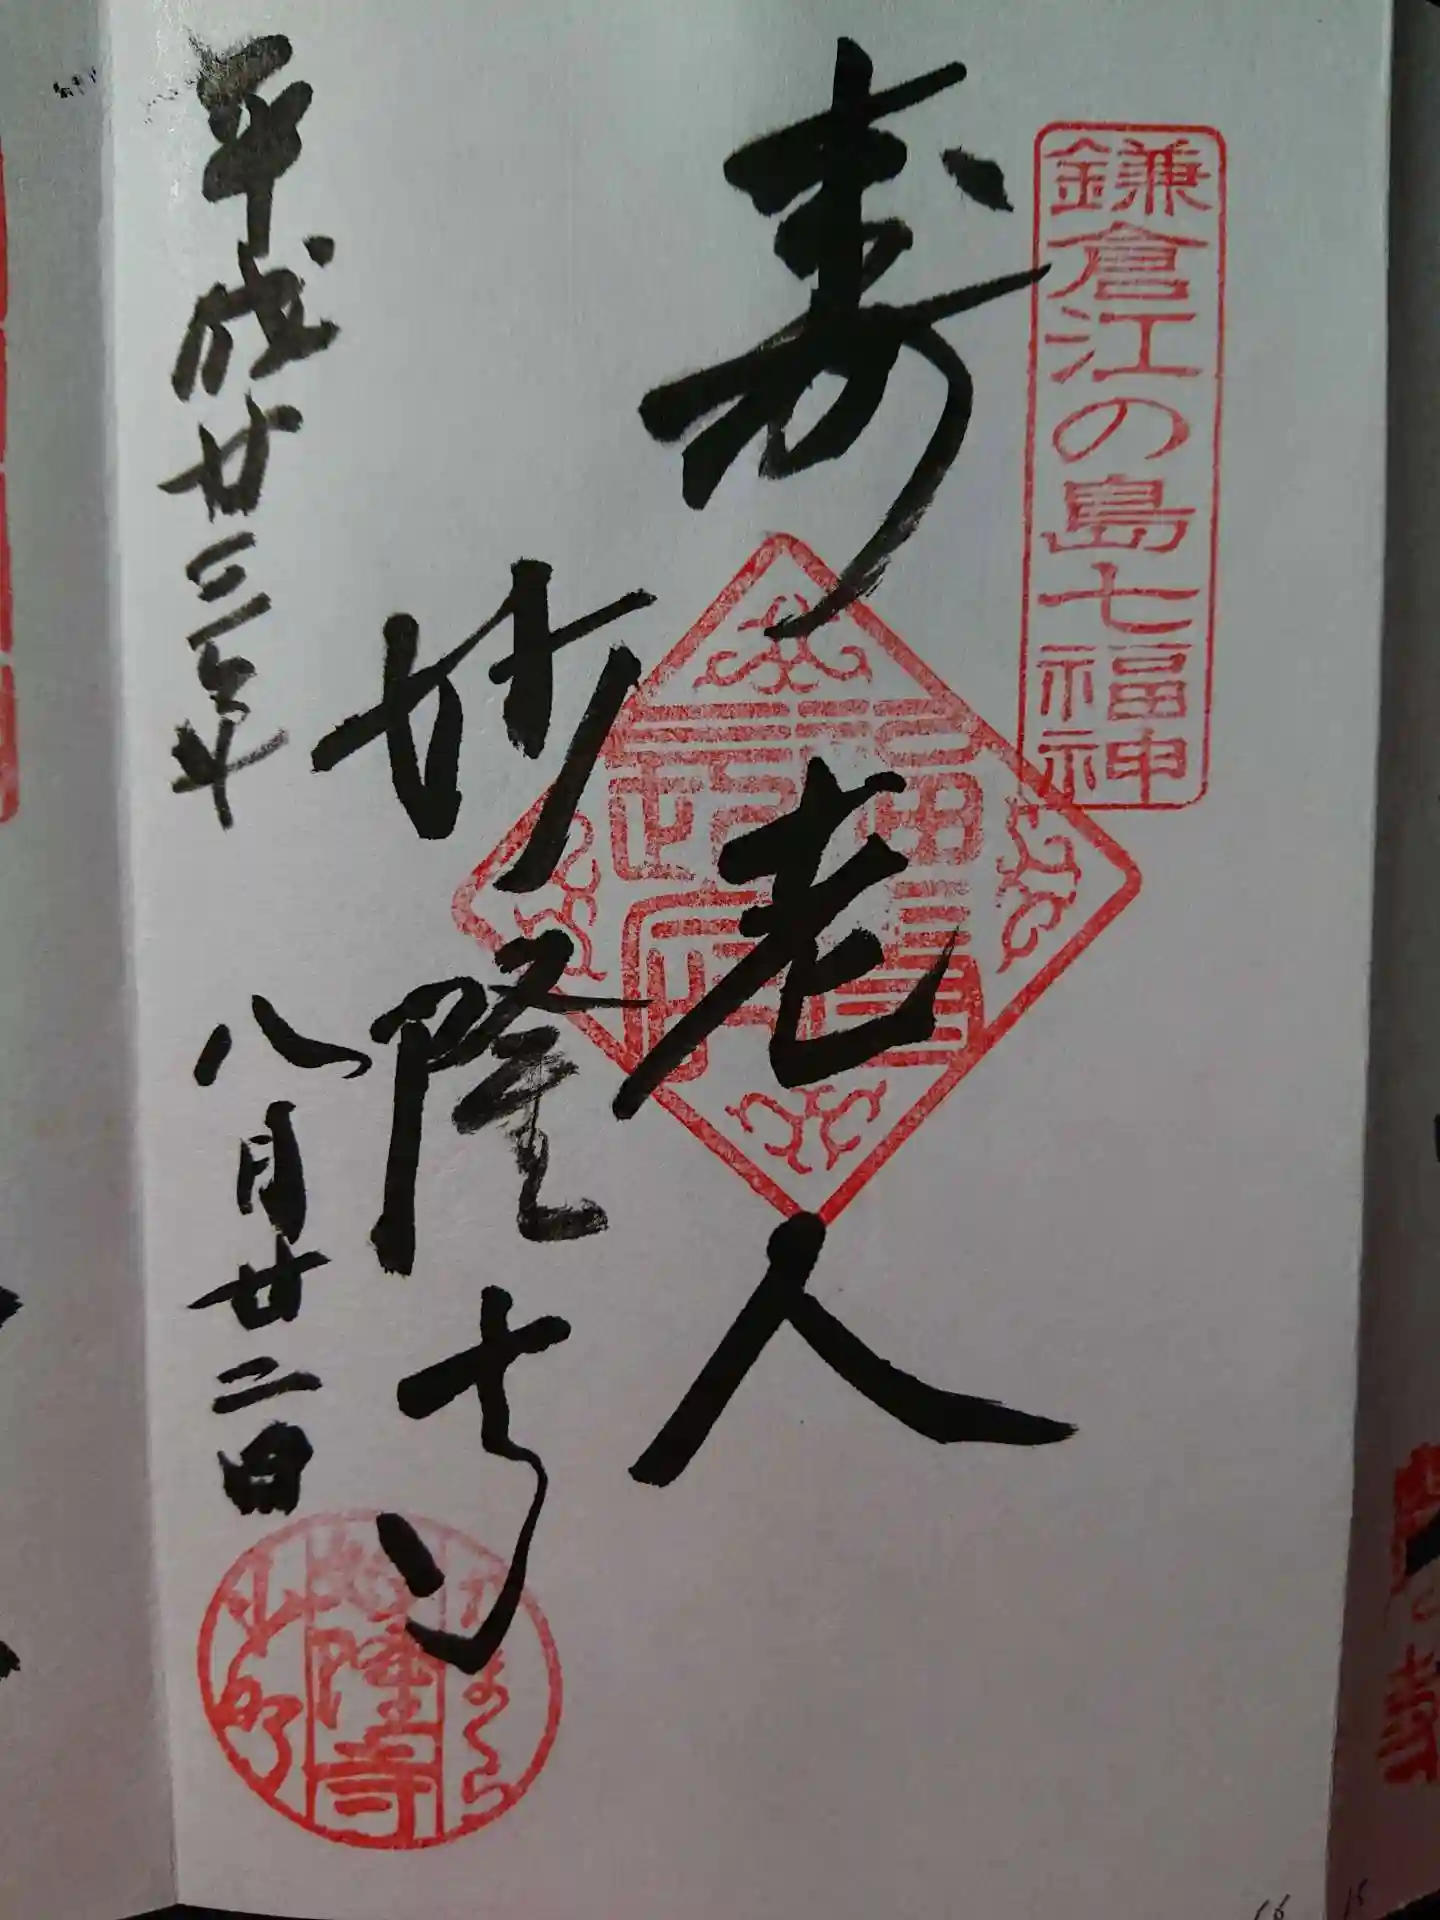 鎌倉江の島七福神
寿老人
妙隆寺
平成廿三年
八月廿二日
かまくら
妙隆寺
小町